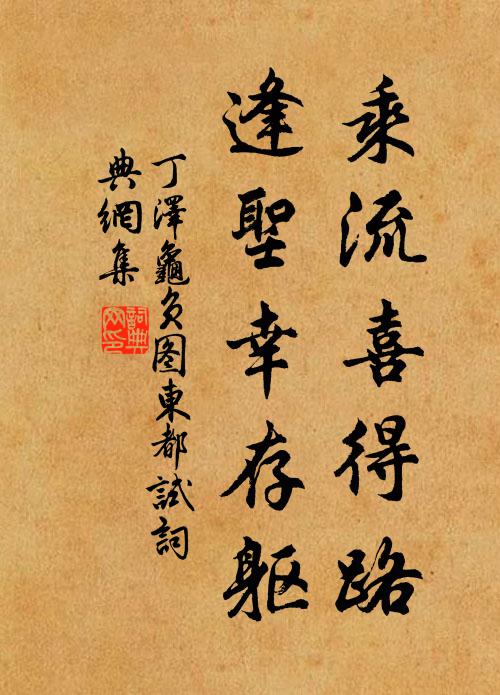 乘流喜得路
逢聖幸存軀
丁澤龜負图東都試詞
典網集
詞典
网印